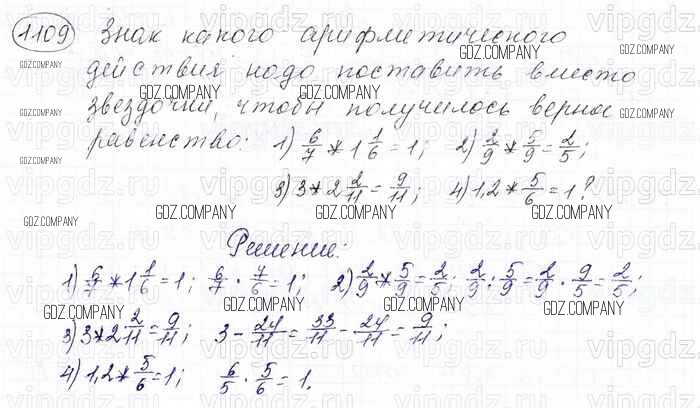 1109 Знак какого арифметического
действия надо поставить вместо
звездочки, чтобы получилось верное
равенство: 1) 6/7 * 1 1/6 = 1; 2) 2/9 * 5/9 = 2/5;
3) 3 * 2 2/11 = 9/11; 4) 1,2 * 5/6 = 1?
Решение:
1) 6/7 * 1 1/6 = 1; 6/7 · 7/6 = 1; 2) 2/9 * 5/9 = 2/5; 2/9 : 5/9 = 2/9 · 9/5 = 2/5;
3) 3 * 2 2/11 = 9/11; 3 - 24/11 = 33/11 - 24/11 = 9/11;
4) 1,2 * 5/6 = 1; 6/5 · 5/6 = 1.
GDZ.COMPANY
vipgdz